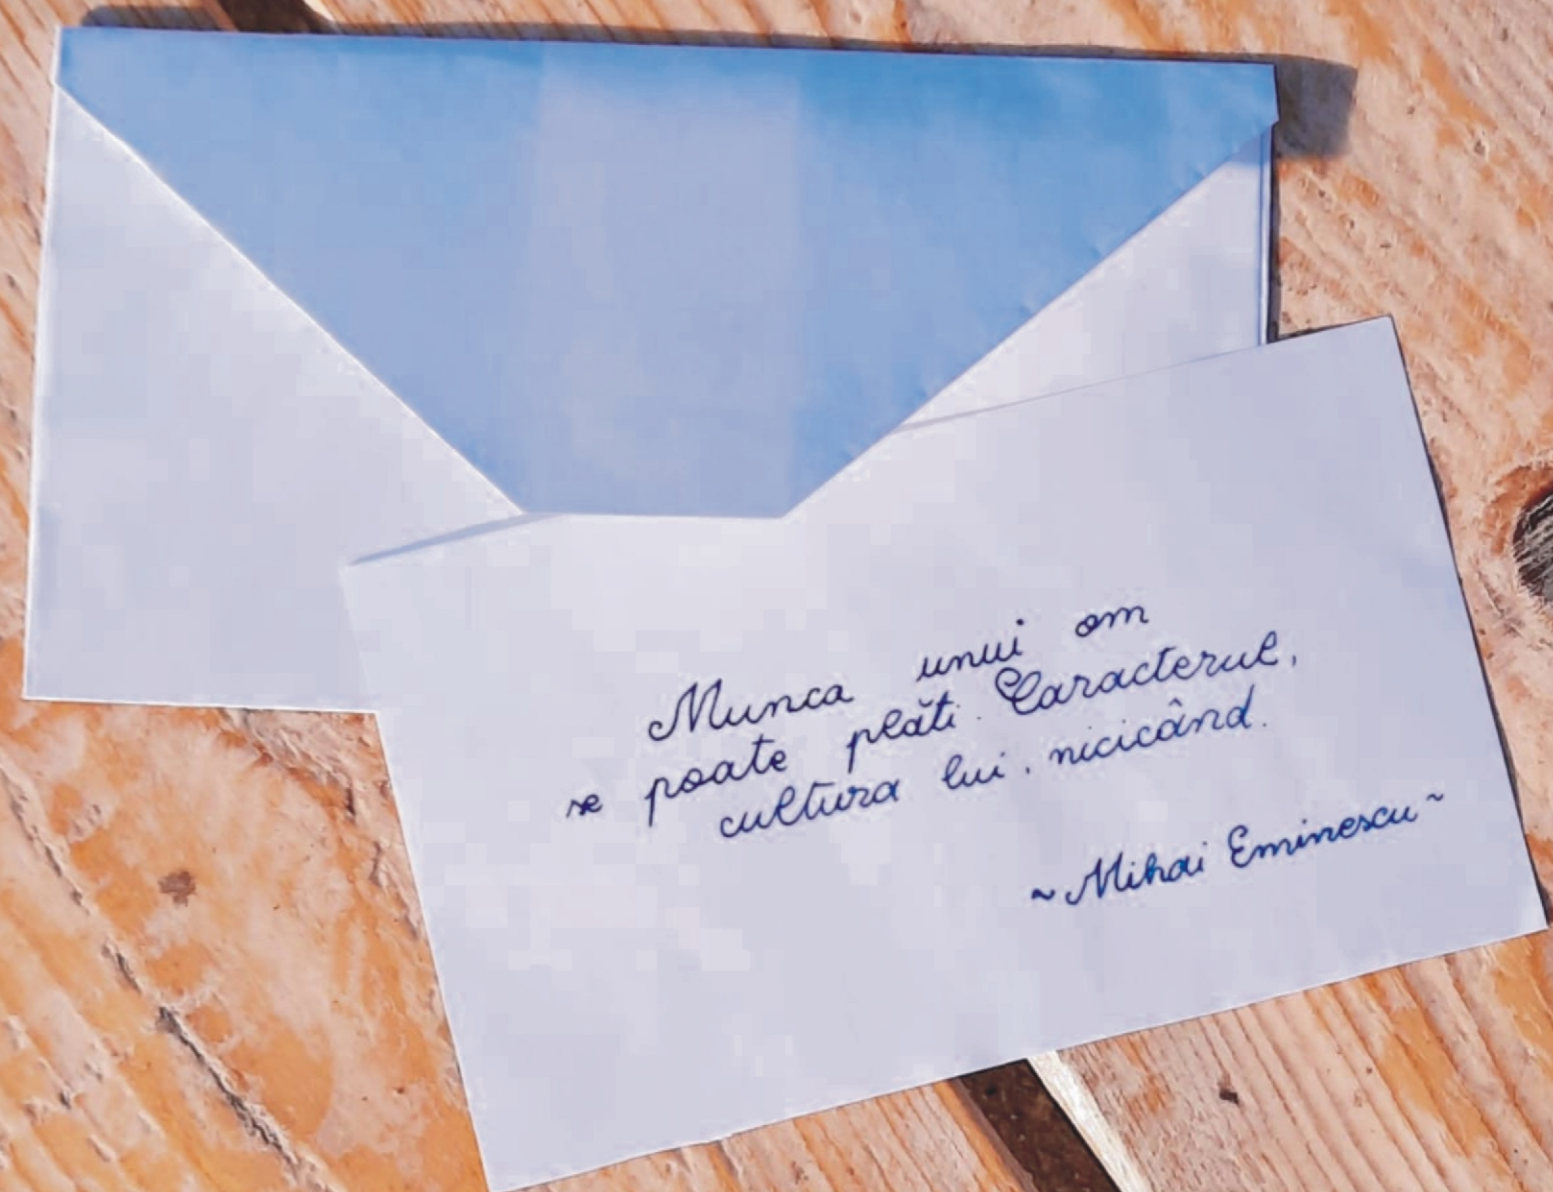 Munca unui om
se poate plăti. Caracterul,
cultura lui, nicicând.
~Mihai Eminescu~